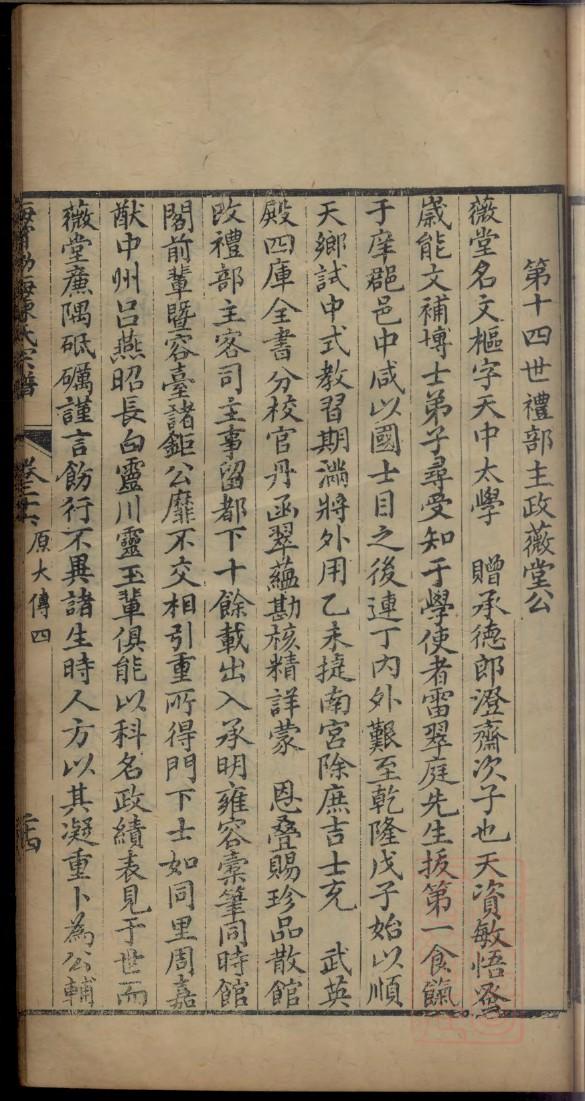 第十四世禮部主政薇堂公
薇堂名文樞字天中太學　贈承德郎澄齋次子也天資敏悟
歲能文補博士弟子尋受知于學使者雷翠庭先生拔第一食餼
于庠郡邑中咸以國士目之後連丁內外艱至乾隆戊子始以順
天鄉試中式教習期滿將外用乙未捷南宮除庶吉士充　武英
殿四庫全書分校官丹函翠蘊勘核精詳蒙　恩叠賜珍品散館
改禮部主客司主事留都下十餘載出入承明雍容槖筆同時館
閣前輩暨容臺諸鉅公靡不交相引重所得門下士如同里周嘉
猷中州呂燕昭長白靈川靈玉輩俱能以科名政績表見于世而
薇堂廉隅砥礪謹言飭行不異諸生時人方以其凝重卜為公輔
海甯渤海陳氏宗譜
卷二十六
原大傳四